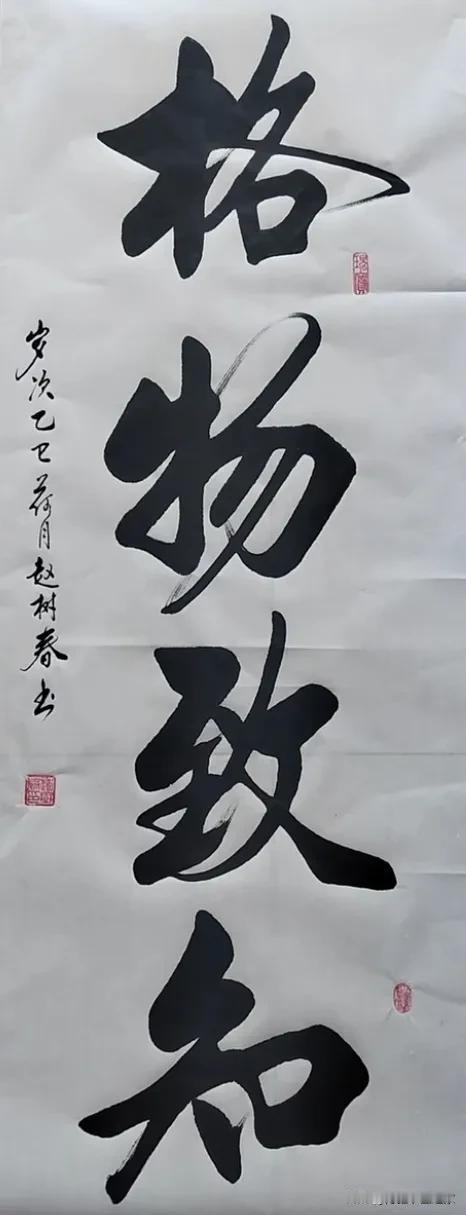 格物致知
岁次乙巳荷月赵树春书